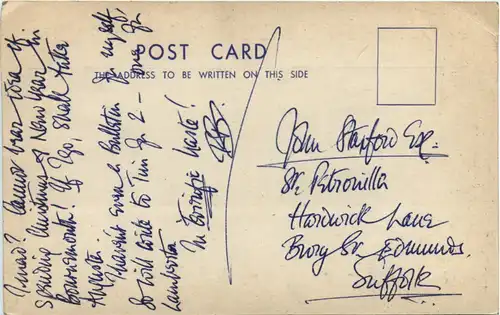 POST CARD
THE ADDRESS TO BE WRITTEN ON THIS SIDE
I mad? Cannot bear idea of
spending Christmas & New Year in
Bournemouth! If I go, shall take
Haven't even a Bulletin for myself,
So will write to Tim
In terrific haste!
John Stanford Esq.
St. Petronilla
Hardwick Lane
Bury St. Edmunds.
Suffolk